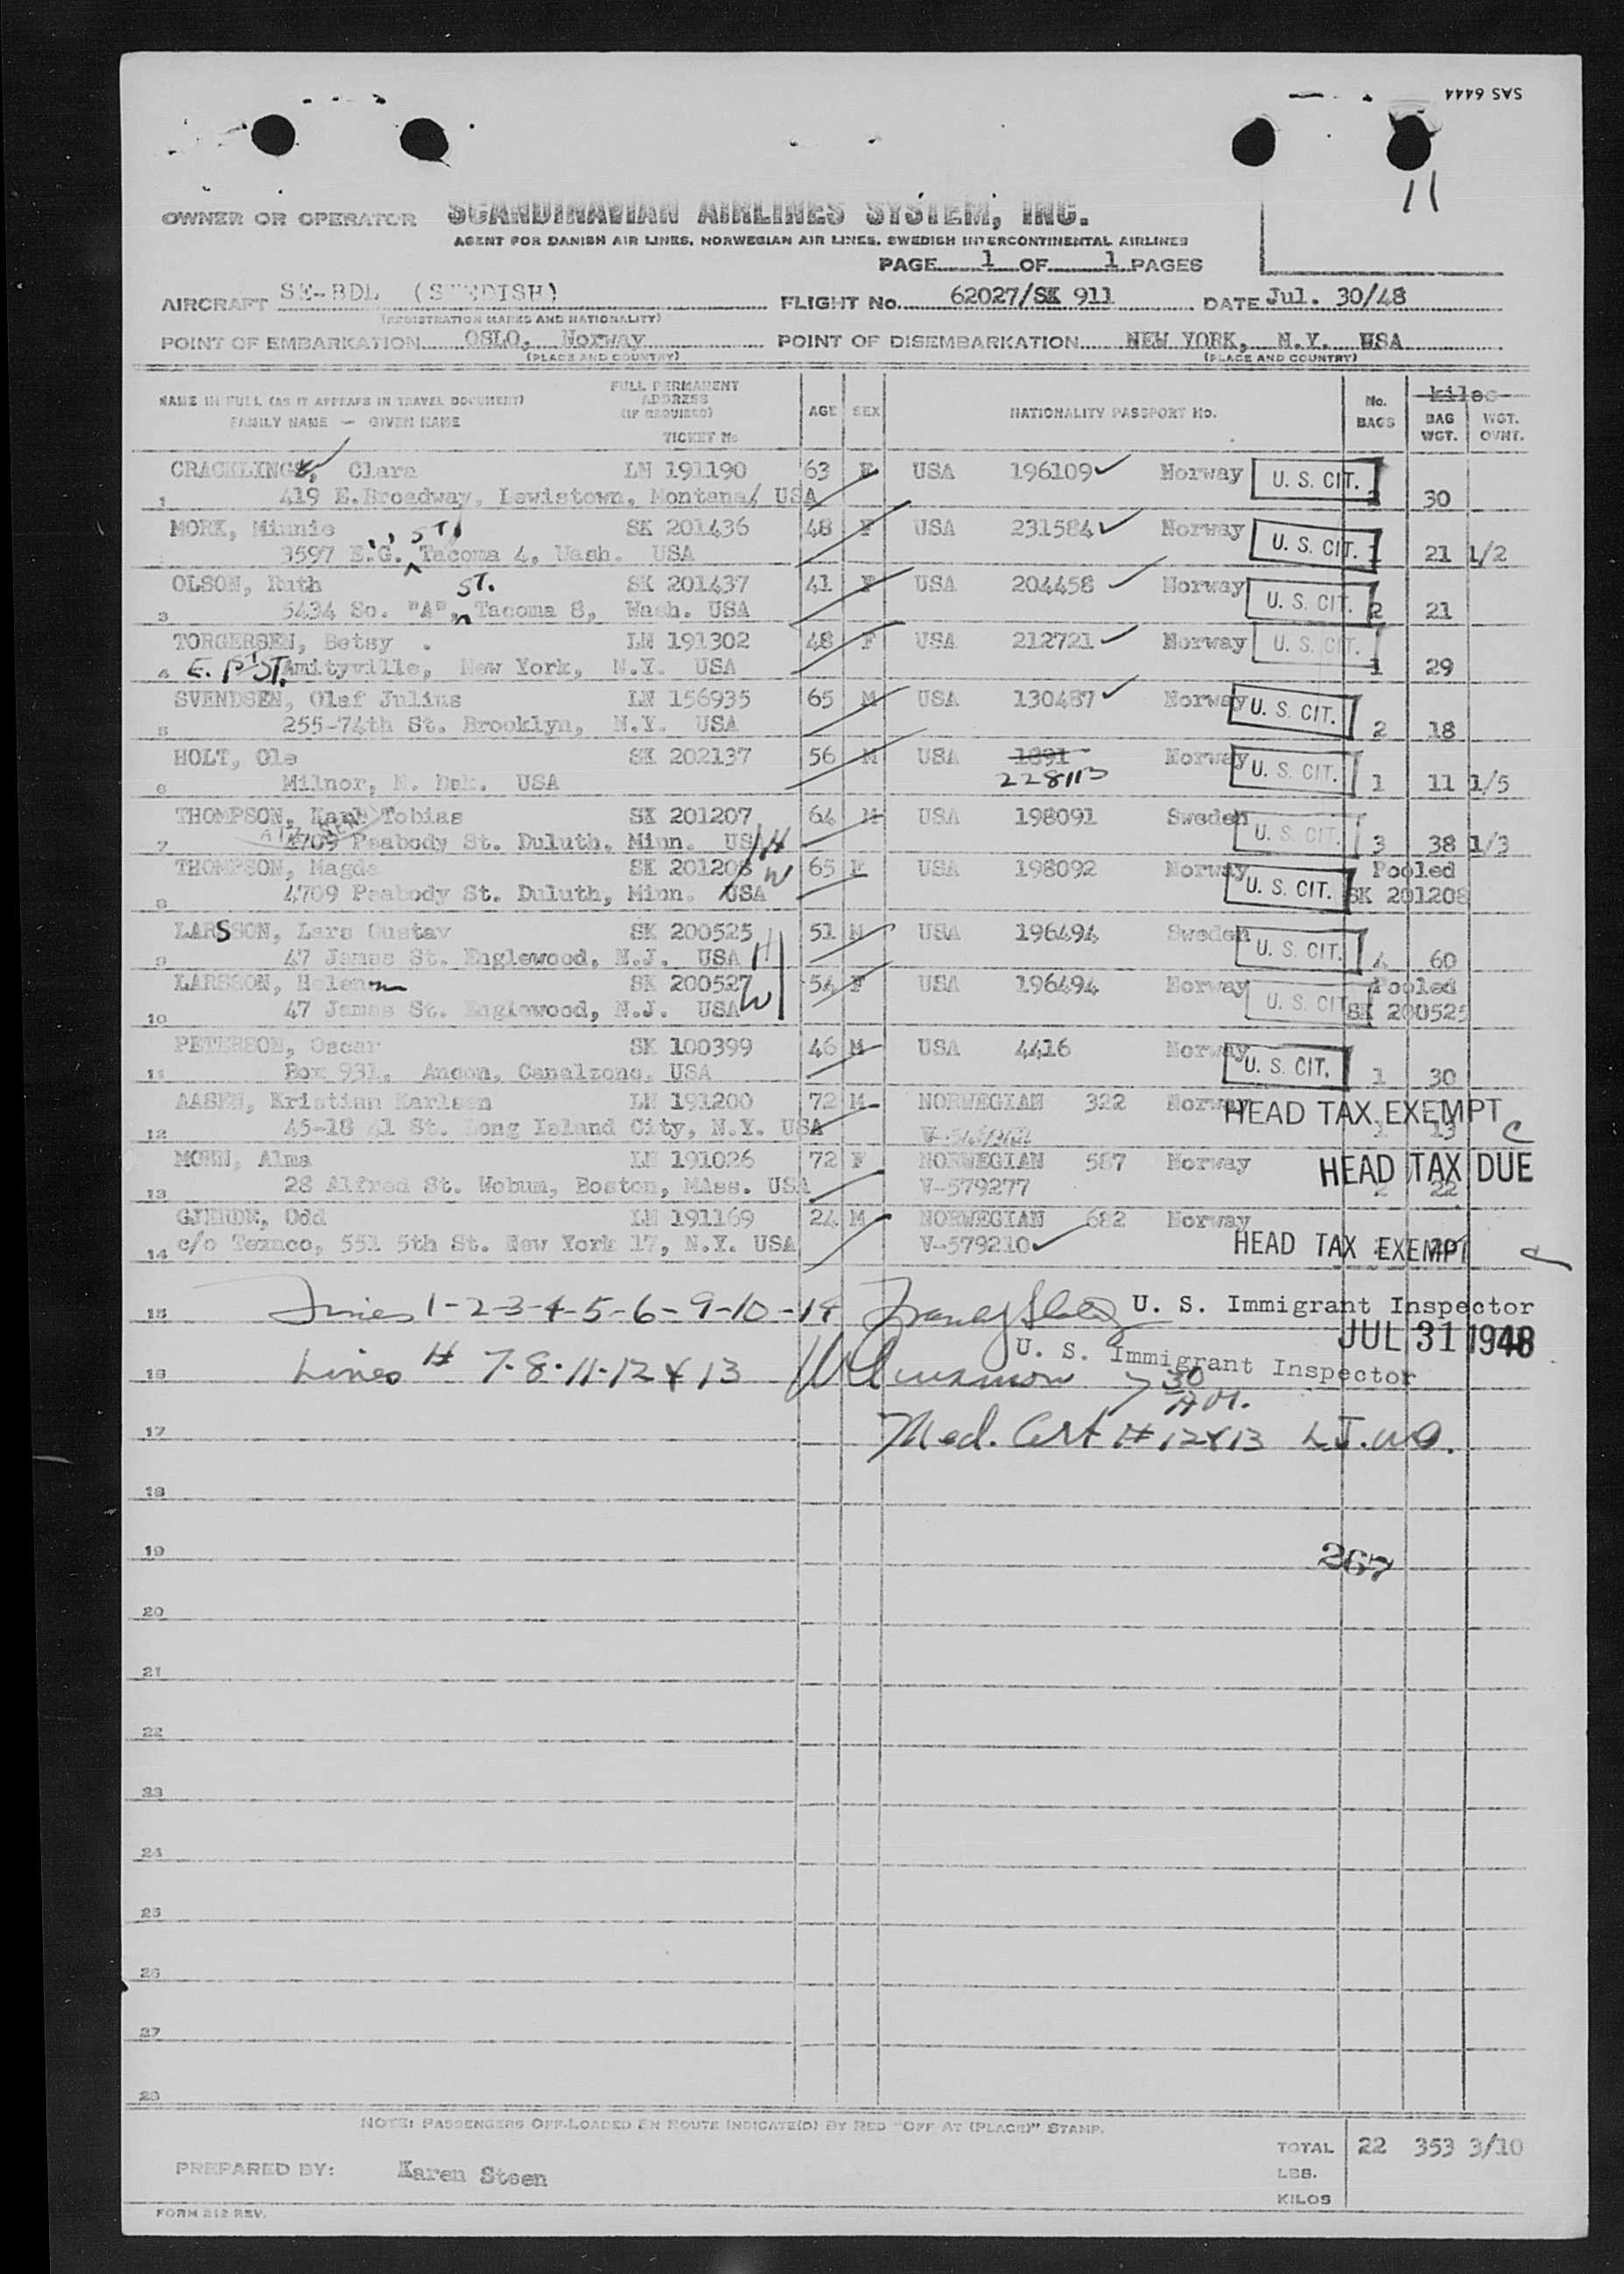 SAS 6444
11
OWNER OR OPERATOR SCANDINAVIAN AIRLINES SYSTEM, INC.
AGENT FOR DANISH AIR LINES, NORWEGIAN AIR LINES, SWEDISH INTERCONTINENTAL AIRLINES
PAGE 1 OF 1 PAGES
AIRCRAFT SE-BDL (SWEDISH) FLIGHT No. 62027/SK 911 DATE Jul. 30/48
(REGISTRATION MARKS AND NATIONALITY)
POINT OF EMBARKATION OSLO, Norway POINT OF DISEMBARKATION NEW YORK, N.Y. USA
(PLACE AND COUNTRY) (PLACE AND COUNTRY)
NAME IN FULL (AS IT APPEARS IN TRAVEL DOCUMENT) FULL PERMANENT ADDRESS (IF REQUIRED) AGE SEX NATIONALITY PASSPORT No. No. BAGS kilos BAG WGT. WGT. OVHT.
FAMILY NAME — GIVEN NAME TICKET No
CRACKLING, Clara LN 191190 63 F USA 196109 Norway U. S. CIT.
1 419 E.Broadway, Lewistown, Montana/ USA 30
MORK, Minnie SK 201436 48 F USA 231584 Norway U. S. CIT. 1
3597 E.G. ST Tacoma 4, Wash. USA 21 1/2
OLSON, Ruth SK 201437 41 F USA 204458 Norway U. S. CIT.
3 5434 So. "A", ST. Tacoma 8, Wash. USA 2 21
TORGERSEN, Betsy . LN 191302 48 F USA 212721 Norway U. S. CIT.
4 Amityville, New York, N.Y. USA 1 29
SVENDSEN, Olaf Julius LN 156935 65 M USA 130487 Norway U. S. CIT.
5 255-74th St. Brooklyn, N.Y. USA 2 18
HOLT, Ole SK 202137 56 M USA 1891 Norway U. S. CIT.
6 Milnor, N. Dak. USA 228113 1 11 1/5
THOMPSON, Tobias SK 201207 64 M USA 198091 Sweden U. S. CIT.
7 4709 Peabody St. Duluth, Minn. USA H 3 38 1/3
THOMPSON, Magda SK 201208 W 65 F USA 198092 Norway U. S. CIT. Pooled
8 4709 Peabody St. Duluth, Minn. USA SK 201208
LARSSON, Lars Gustav SK 200525 51 M USA 196494 Sweden U. S. CIT.
9 47 James St. Englewood, N.J. USA H 4 60
LARSSON, Helen SK 200527 54 F USA 196494 Norway U. S. CIT. Pooled
10 47 James St. Englewood, N.J. USA W SK 200525
PETERSON, Oscar SK 100399 46 M USA 4416 Norway U. S. CIT.
11 Box 931, Ancon, Canalzone, USA 1 30
AASEN, Kristian Karlsen LN 191200 72 M NORWEGIAN 322 Norway HEAD TAX EXEMPT
12 45-18 41 St. Long Island City, N.Y. USA C
MOEN, Alma LN 191026 72 F NORWEGIAN 587 Norway HEAD TAX DUE
13 28 Alfred St. Wobum, Boston, MAss. USA V-579277 2 22
GJERDE, Odd LN 191169 24 M NORWEGIAN 682 Norway
14 c/o Texaco, 551 5th St. New York 17, N.Y. USA V-579210 HEAD TAX EXEMPT
15 Lines 1-2-3-4-5-6-9-10-14 U. S. Immigrant Inspector
JUL 31 1948
16 Lines # 7-8-11-12 & 13 U. S. Immigrant Inspector
7 30 AM.
17 Med. Cert # 12 & 13
18
19 267
20
21
22
23
24
25
26
27
28
NOTE: PASSENGERS OFF-LOADED EN ROUTE INDICATE(D) BY RED "OFF AT (PLACE)" STAMP.
TOTAL 22 353 3/10
PREPARED BY: Karen Steen LBS.
KILOS
FORM 212 REV.